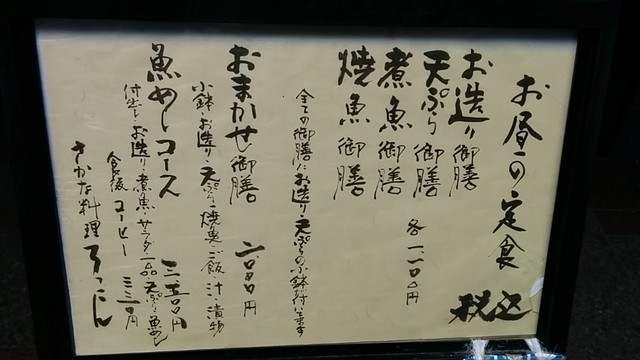 お昼の定食
税込
お造り御膳
天ぷら御膳
煮魚御膳
焼魚御膳
各一、一〇〇円
全ての御膳にお造り・天ぷらの小鉢付いてます
おまかせ御膳
小鉢・お造り・天ぷら・焼魚・ご飯・汁・漬物
魚めしコース
付出し・お造り・煮魚・サラダ・一品・天ぷら・魚めし
食後コーヒー
三三〇円
さかな料理